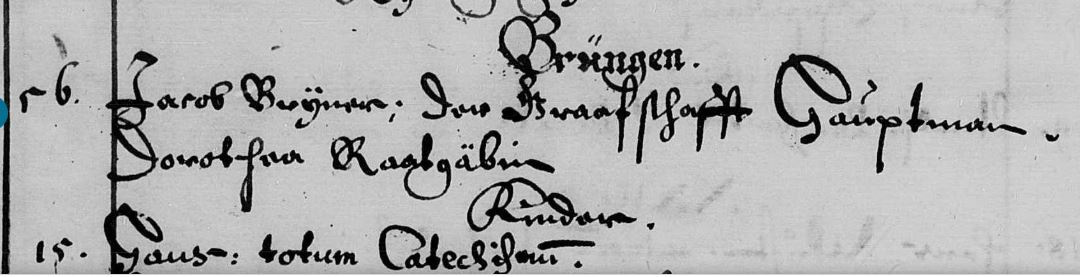 Brüngen.
56. Jacob Brÿner; der Graafschafft Hauptman.
Dorothea Raatgäbin
Kinder.
15. Hans: totum Catechism̅.